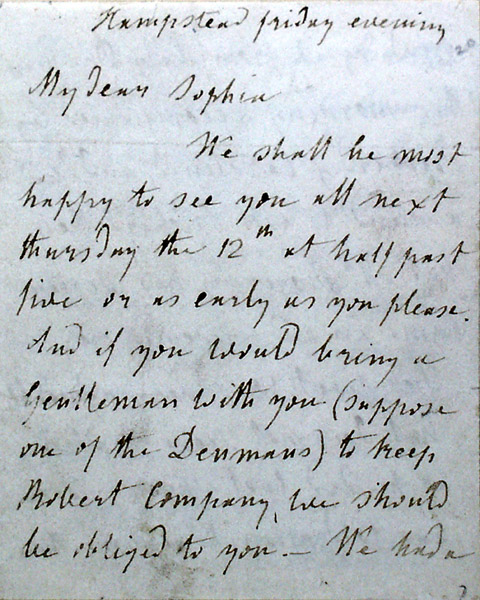 Hampstead friday evening
20
My dear Sophia
We shall be most
happy to see you all next
thursday the 12th at half past
five or as early as you please.
And if you would bring a
Gentleman with you (suppose
one of the Denmans) to keep
Robert Company, we should
be obliged to you. – We had a